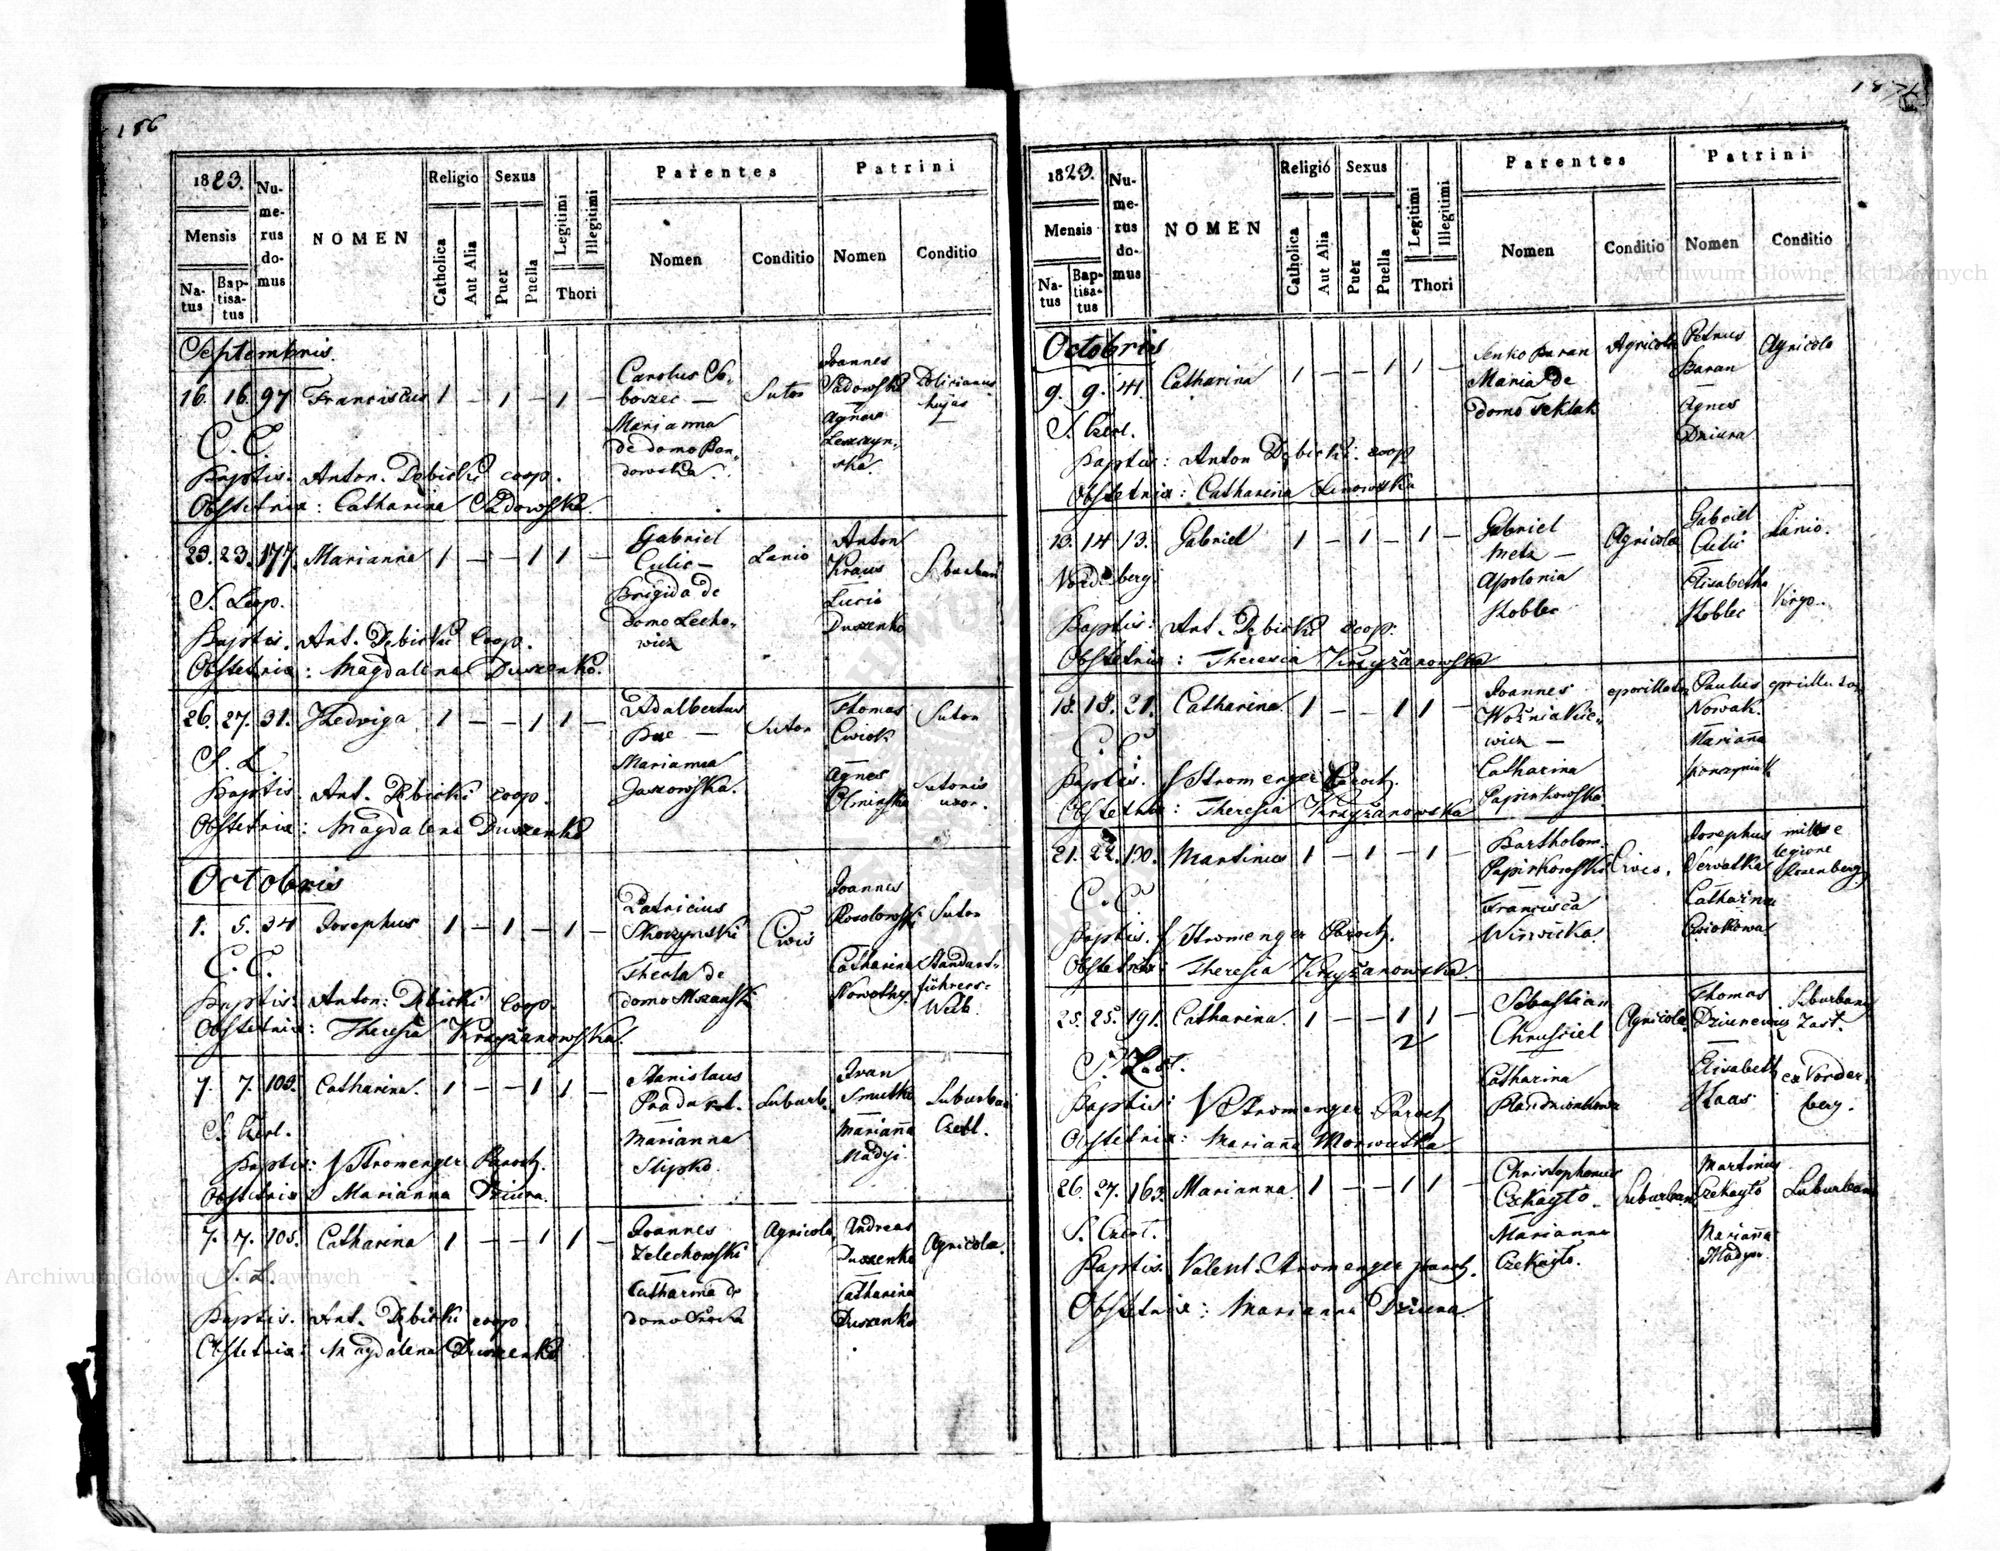 186
1823.
Numerus domus
NOMEN
Religio
Sexus
Legitimi
Illegitimi
Parentes
Patrini
Mensis
Catholica
Aut Alia
Puer
Puella
Thori
Nomen
Conditio
Nomen
Conditio
Natus
Baptisatus
Septembris.
16. 16. 97 Franciscus 1 – 1 – 1 –
Carolus So-
boszec —
Marianna
de domo Ban-
dowska.
Sutor
Joannes
Sadowski
Agnes
Leszczyn-
ska
hujas
C. C.
Baptis: Anton. Dębicki coop.
Obstetrix: Catharina Sadowska.
23. 23. 177. Marianna 1 – – 1 1 –
Gabriel
Culic —
Brigida de
Domo Lecho-
wicz
Lanio
Anton
Kraus
Lucia
Duszenko
S. Leop.
Baptis. Ant. Dębicki Coop.
Obstetrix: Magdalena Duszenko.
26. 27. 31. Hedviga 1 – – 1 1 –
Adalbertus
Marianna
Jaszowska.
Sutor
Thomas
Cwiok
Agnes
Olminska
Sutor
Sutoris
uxor.
S. L.
Baptis: Ant. Dębicki coop.
Obstetrix: Magdalena Duszenko
Octobris
1. 5. 34 Josephus 1 – 1 – 1 –
Patricius
Skoczynski
Thecla de
domo Mszanski
Civis
Joannes
Rosolowski
Catharina
Nowothy
Sutor
Standart-
führers-
Weib.
C. C.
Baptis: Anton: Dębicki Coop.
Obstetrix: Theresia Krzyżanowska.
7. 7. 105. Catharina. 1 – – 1 1 –
Stanislaus
Marianna
Slipko.
Suburb.
Ivan
Smutko
Marianna
Madyi.
Suburban
Czerl.
S. Czerl.
Baptis: V Stromenger Paroch.
Obstetrix: Marianna Dziura.
7. 7. 105. Catharina 1 – – 1 1 –
Joannes
Zelechowski
Catharina de
domo
Agricola
Andreas
Duszenko
Catharina
Duszenko
Agricola.
S. L.
Baptis. Ant. Dębicki coop.
Obstetrix: Magdalena Duszenko
187
1823.
Numerus domus
NOMEN
Religió
Sexus
Legitimi
Illegitimi
Parentes
Patrini
Mensis
Catholica
Aut Alia
Puer
Puella
Thori
Nomen
Conditio
Nomen
Conditio
Natus
Baptisatus
Octobris
9. 9. 41. Catharina 1 – – 1 1 –
Senko Baran
Maria de
domo Seklak
Agricola
Petrus
Baran
Agnes
Dziura
Agricola
S. Czerl.
Baptis: Anton Dębicki. coop
Obstetrix: Catharina Linowska
13. 14 13. Gabriel 1 – 1 – 1 –
Gabriel
Metz —
Apolonia
Koblec
Agricola
Gabriel
Culic
Elisabetha
Koblec
Lanio.
Virgo.
Vorderberg
Baptis: Ant. Dębicki coop.
Obstetrix: Theresia Krzyżanowska
18. 18. 21. Catharina. 1 – – 1 1 –
Joannes
Woźniakie-
wicz —
Catharina
Papirkowska
Paulus
Nowak.
Marianna
C. C.
Baptis. V Stromenger Paroch.
Obstetrix: Theresia Krzyżanowska
21. 22. 190. Martinus 1 – 1 – 1 –
Bartholom.
Papirkowski
Francisca
Winnicka.
Civis.
Josephus
Serwatka
Catharina
Cwiokowa.
miles e
legione
Rosenberg
C. C
Baptis. V Stromenger Paroch.
Obstetrix: Theresia Krzyżanowska.
25. 25. 191. Catharina. 1 – – 1 1 –
2
Sebastian
Chruściel
Catharina
Agricola.
Thomas
Elisabeth
Haas
Suburbanus
Zast.
ex Vorder-
berg.
S. Zast.
Baptis: V Stromenger Paroch
Obstetrix: Marianna Morwatka
26. 27. 163. Marianna. 1 – – 1 1 –
Christophorus
Czekayło.
Marianna
Czekayło.
Suburban
Martinus
Czekayło
Marianna
Madyo
Suburban
S. Czerl.
Baptis. Valent. Stromenger paroch.
Obstetrix: Marianna Dziura
Archiwum Główne Akt Dawnych
Archiwum Główne Akt Dawnych